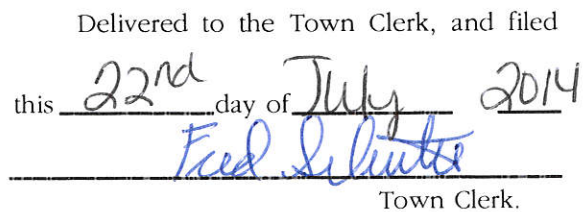 Delivered to the Town Clerk, and filed
this 22nd day of July 2014
Fred
Town Clerk.